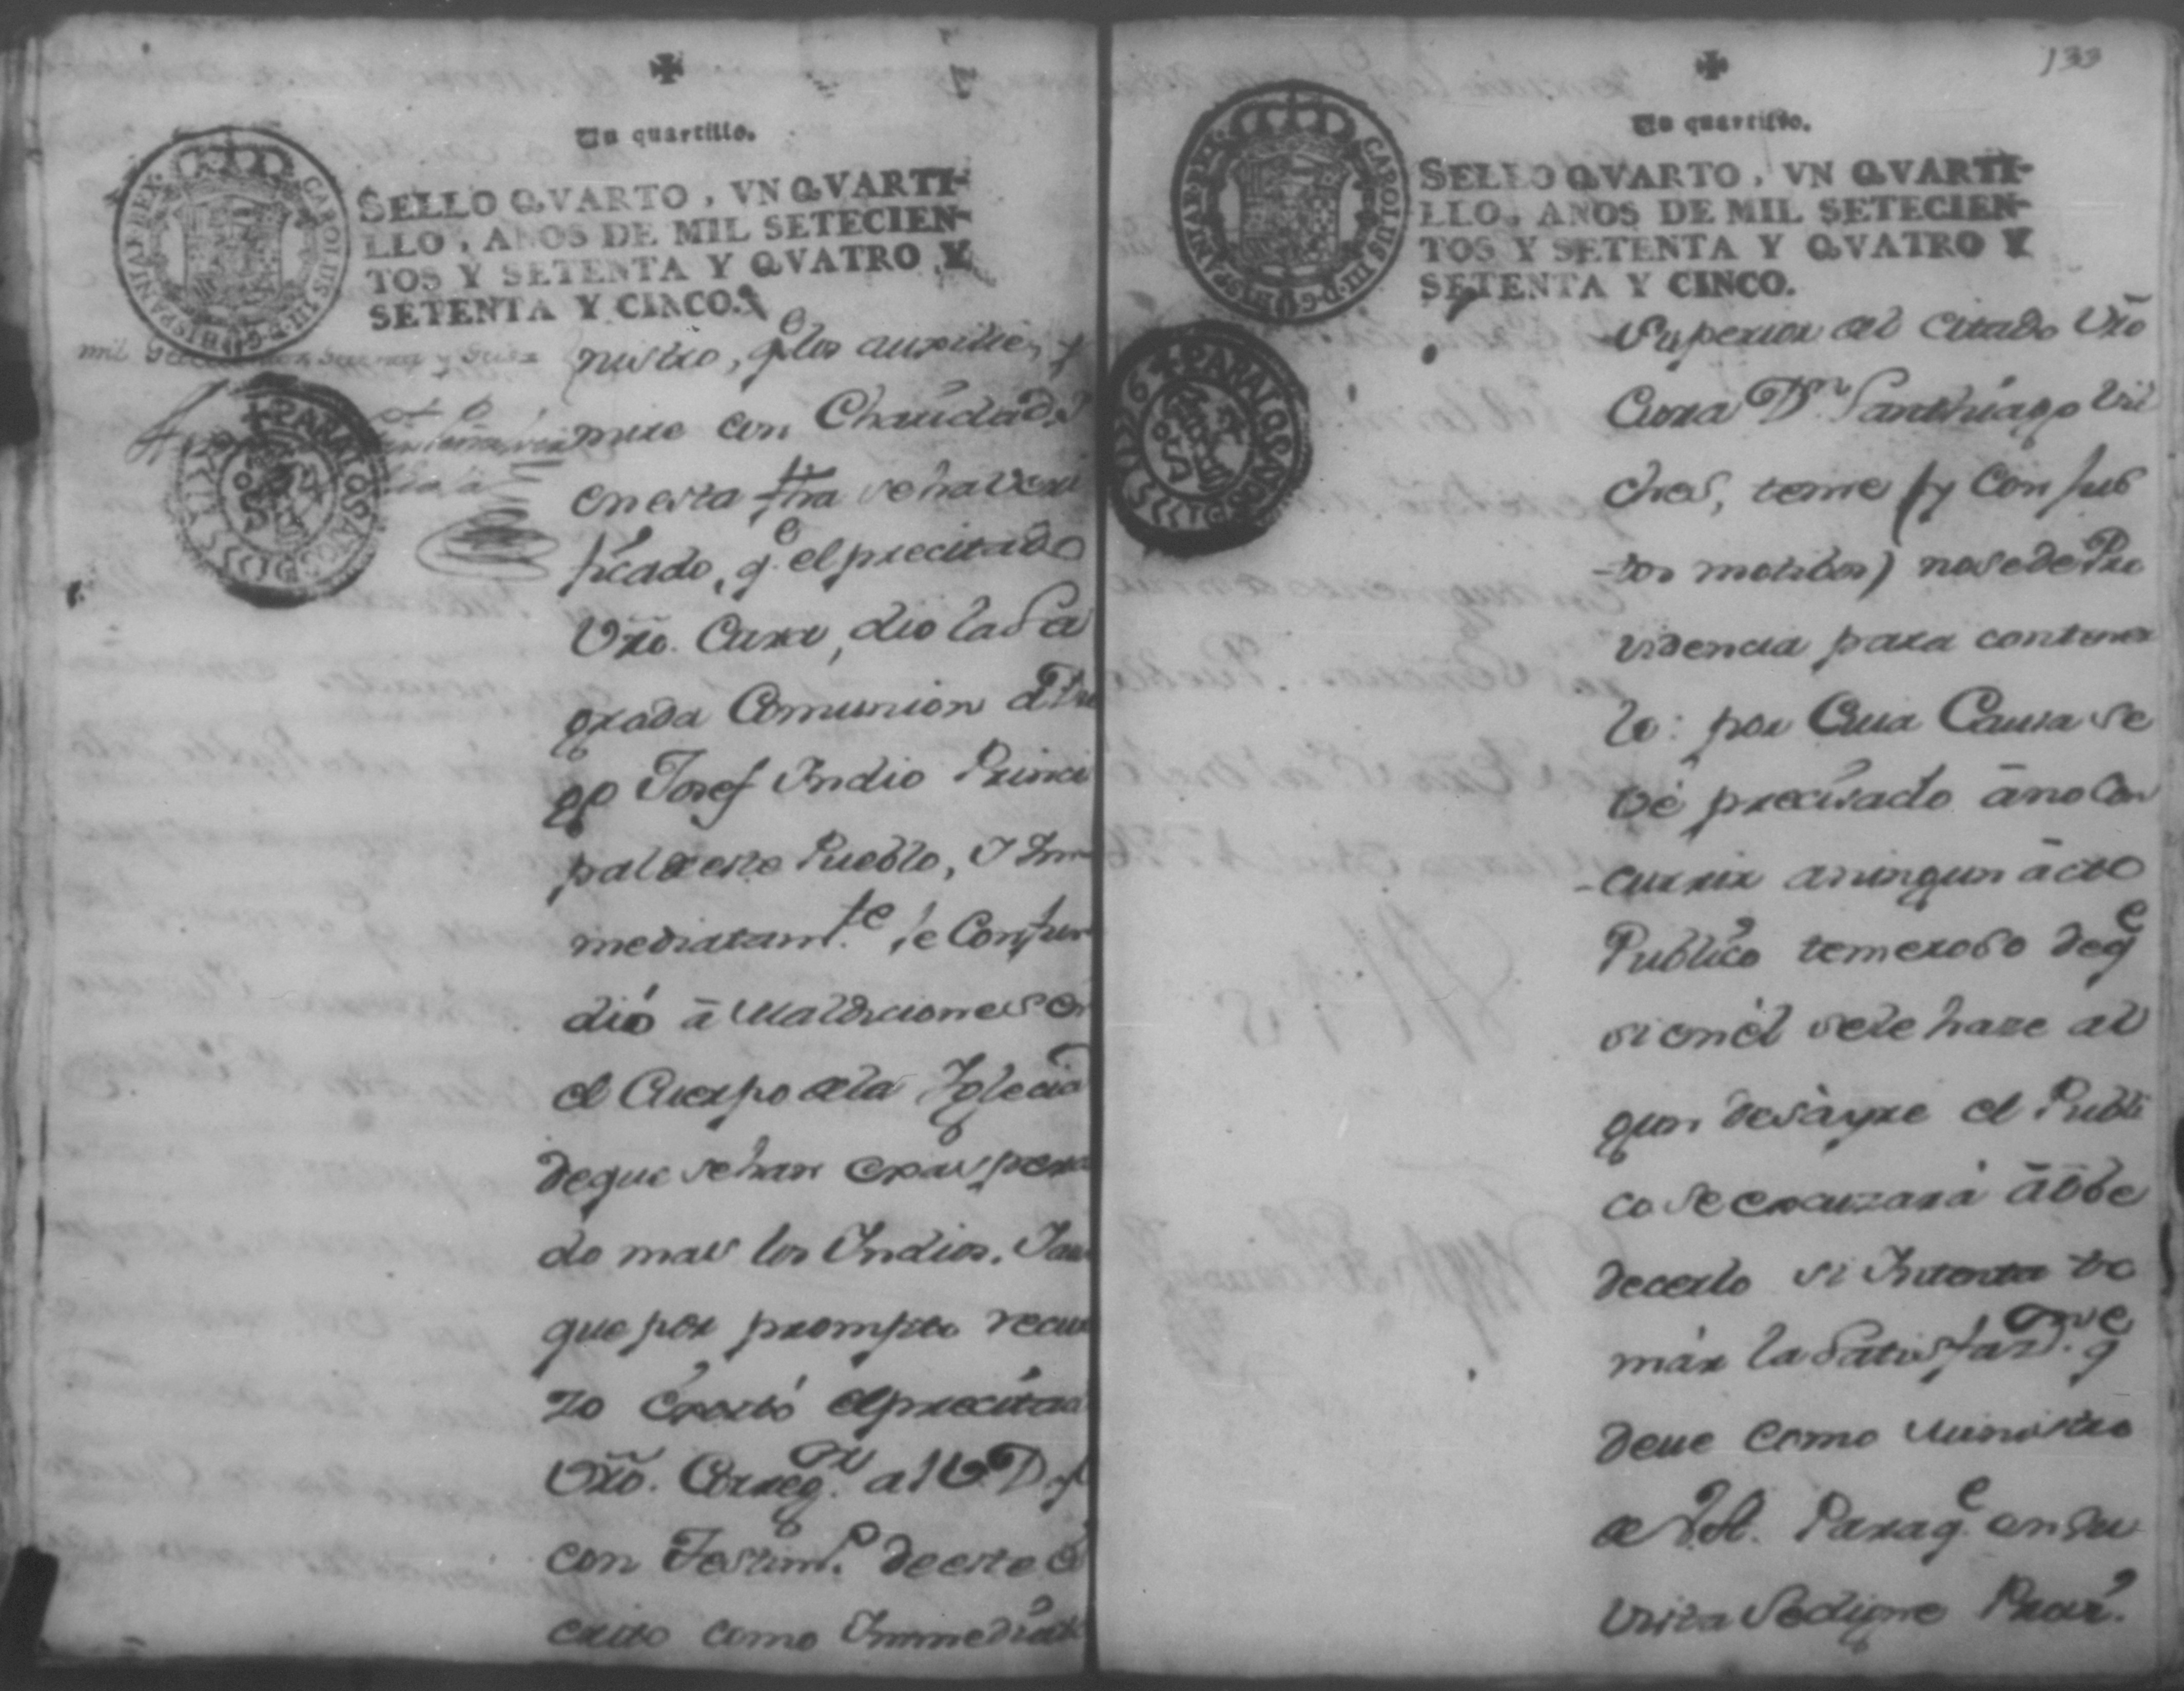 Un quartillo.
SELLO QVARTO, VN QVARTI-
LLO, AÑOS DE MIL SETECIEN-
TOS Y SETENTA Y QVATRO Y
SETENTA Y CINCO.
CAROLUS III D. G. HISPANIAR REX
PARA LOS AÑOS DE 1776
nistro, q.e los auxilie, y
mire con Charidad. Y
en esta fha se ha veri
ficado, q.e el precitado
Vro. Cura, dio la Sa
grada Comunion a
Josef Indio Princi
pal de este Pueblo, Y Im
mediatam.te se Confun
dió â Maldiciones en
el Cuerpo de la Iglecia
de que se han exaspera
do mas los Indios. Y au
que por prompto recur
zo el precitado
Vro. Correg.or a
con Testim.o de este Es
crito como Immediato
133
Un quartillo.
SELLO QVARTO, VN QVARTI-
LLO, AÑOS DE MIL SETECIEN-
TOS Y SETENTA Y QVATRO Y
SETENTA Y CINCO.
CAROLUS III D. G. HISPANIAR REX
PARA LOS AÑOS DE 1776
Superior del citado Vro
Cura D.n Santhiago Vil
ches, teme (y con jus
tos motibos) no se de Pro
videncia para contener
lo: por Cuia Causa se
vé precisado âno con
currir a ningun âcto
Publico temeroso de q.e
si en él se le haze al
gun desayre el Publi
co se excuzará âôbe
decerlo si Intenta to
már la Satisfaz.on q.e
deve como Ministro
de V.A. Para q.e en su
vista se digne Prov.